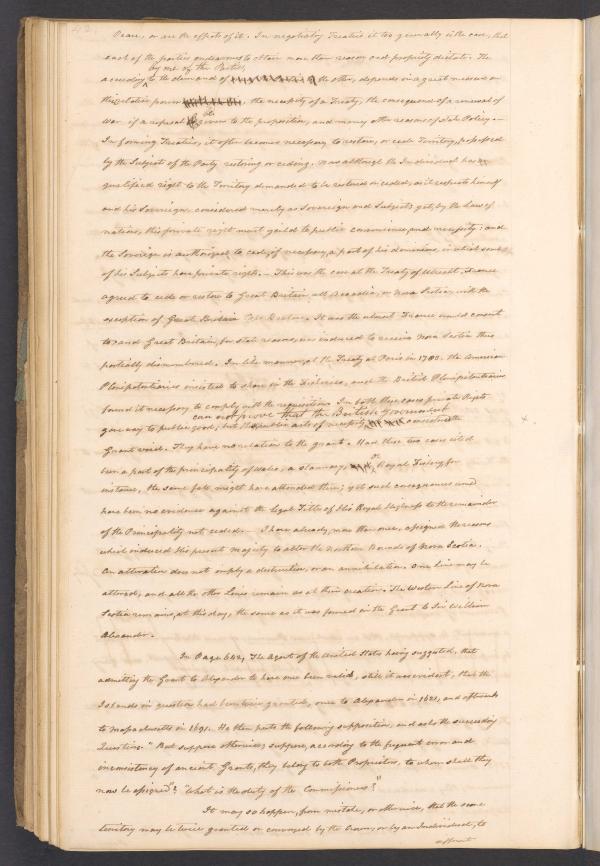 Peace, or are the effects of it. In negotiating Treaties, it too generally is the case, that
each of the parties endeavours to obtain more than reason and propriety dictate. The
by one of the Parties,
acceeding to the demands of the other, depends in a great measure on
the relative power the necessity of a Treaty, the consequence of a renewal of
War, if a refusal is given to the proposition, and many other reasons of State Policy.—
In forming Treaties, it often becomes necessary to restore, or cede Territory, possessed
by the Subjects of the Party restoring or ceding. Now although the Individual has a
qualified right to the Territory demanded to be restored or ceded, as it respects himself
and his Sovereign, considered merely as Sovereign and Subject; yet, by the Law of
nations, this private right must yield to public convenience, and necessity; and
the Sovereign is authorized to cede, if necessary, a part of his dominions, in which some
of his Subjects have private rights.— This was the case at the Treaty of Utrecht. France
agreed to cede or restore to Great Britain all Accadia, or Nova Scotia, with the
exception of Cape Breton. It was the utmost France would consent
to, and Great Britain, for State reasons, was induced to receive Nova Scotia thus
partially dismembered. In like manner, at the Treaty of Paris in 1783. the American
Plenipotentiaries insisted to share in the Fisheries, and the British Plenipotentiaries
found it necessary to comply with the requisition. In both these cases private Rights
can not prove that the British Government
gave way to public good; but the public acts of necessity considered the
Grant void. They have no relation to the grant. Had these two cases cited
been a part of the principality of Wales, a Stannary, or Royal Fishery, for
instance, the same fate might have attended them; yet such consequences would
have been no evidence against the legal Title of His Royal Highness to the remainder
of the Principality not ceded.— I have already, more than once, assigned the reasons
which induced His present Majesty to alter the Northern Bounds of Nova Scotia.
An alteration does not imply a destruction, or an annihilation. One Line may be
altered, and all the other Lines remain as at their creation. The Western Line of Nova
Scotia remains, at this day, the same as it was formed in the Grant to Sir William
Alexander.
In Page 642, The Agent of the United States having suggested, that
admitting the Grant to Alexander to have once been valid, still it was evident, that the
Islands in question had been twice granted, once to Alexander in 1621, and afterwards
to Massachusetts in 1691. He then puts the following supposition, and asks the succeeding
Questions. "But suppose otherwise; suppose, according to the frequent error and
inconsistency of ancient Grants, they belong to both Proprietors, to whom shall they
now be assigned"? "What is the duty of the Commissioners?"
It may so happen, from mistake, or otherwise, that the same
territory may be twice granted or conveyed by the Crown, or by an Individual, to